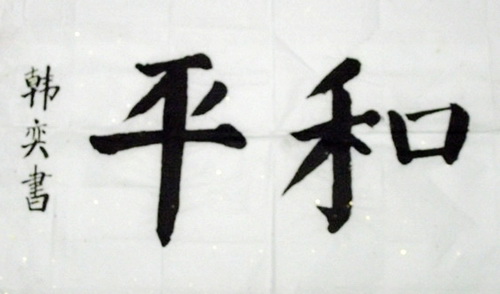 和平
韩奕書